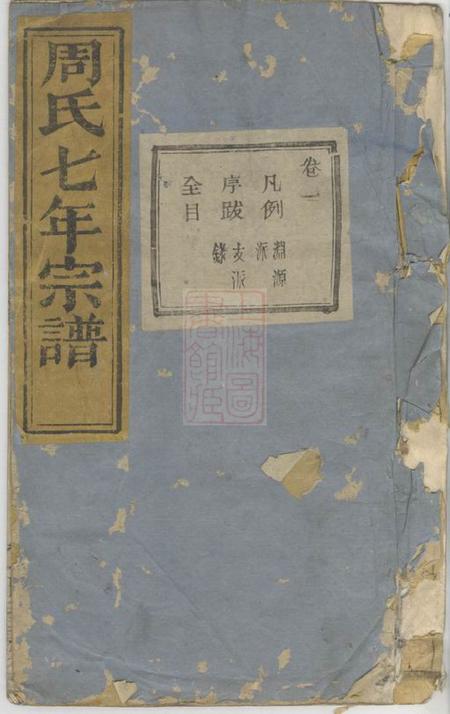 周氏七年宗譜
卷一
凡例 淵源
派
序跋 支派
錄
全目
上海圖
書館臧